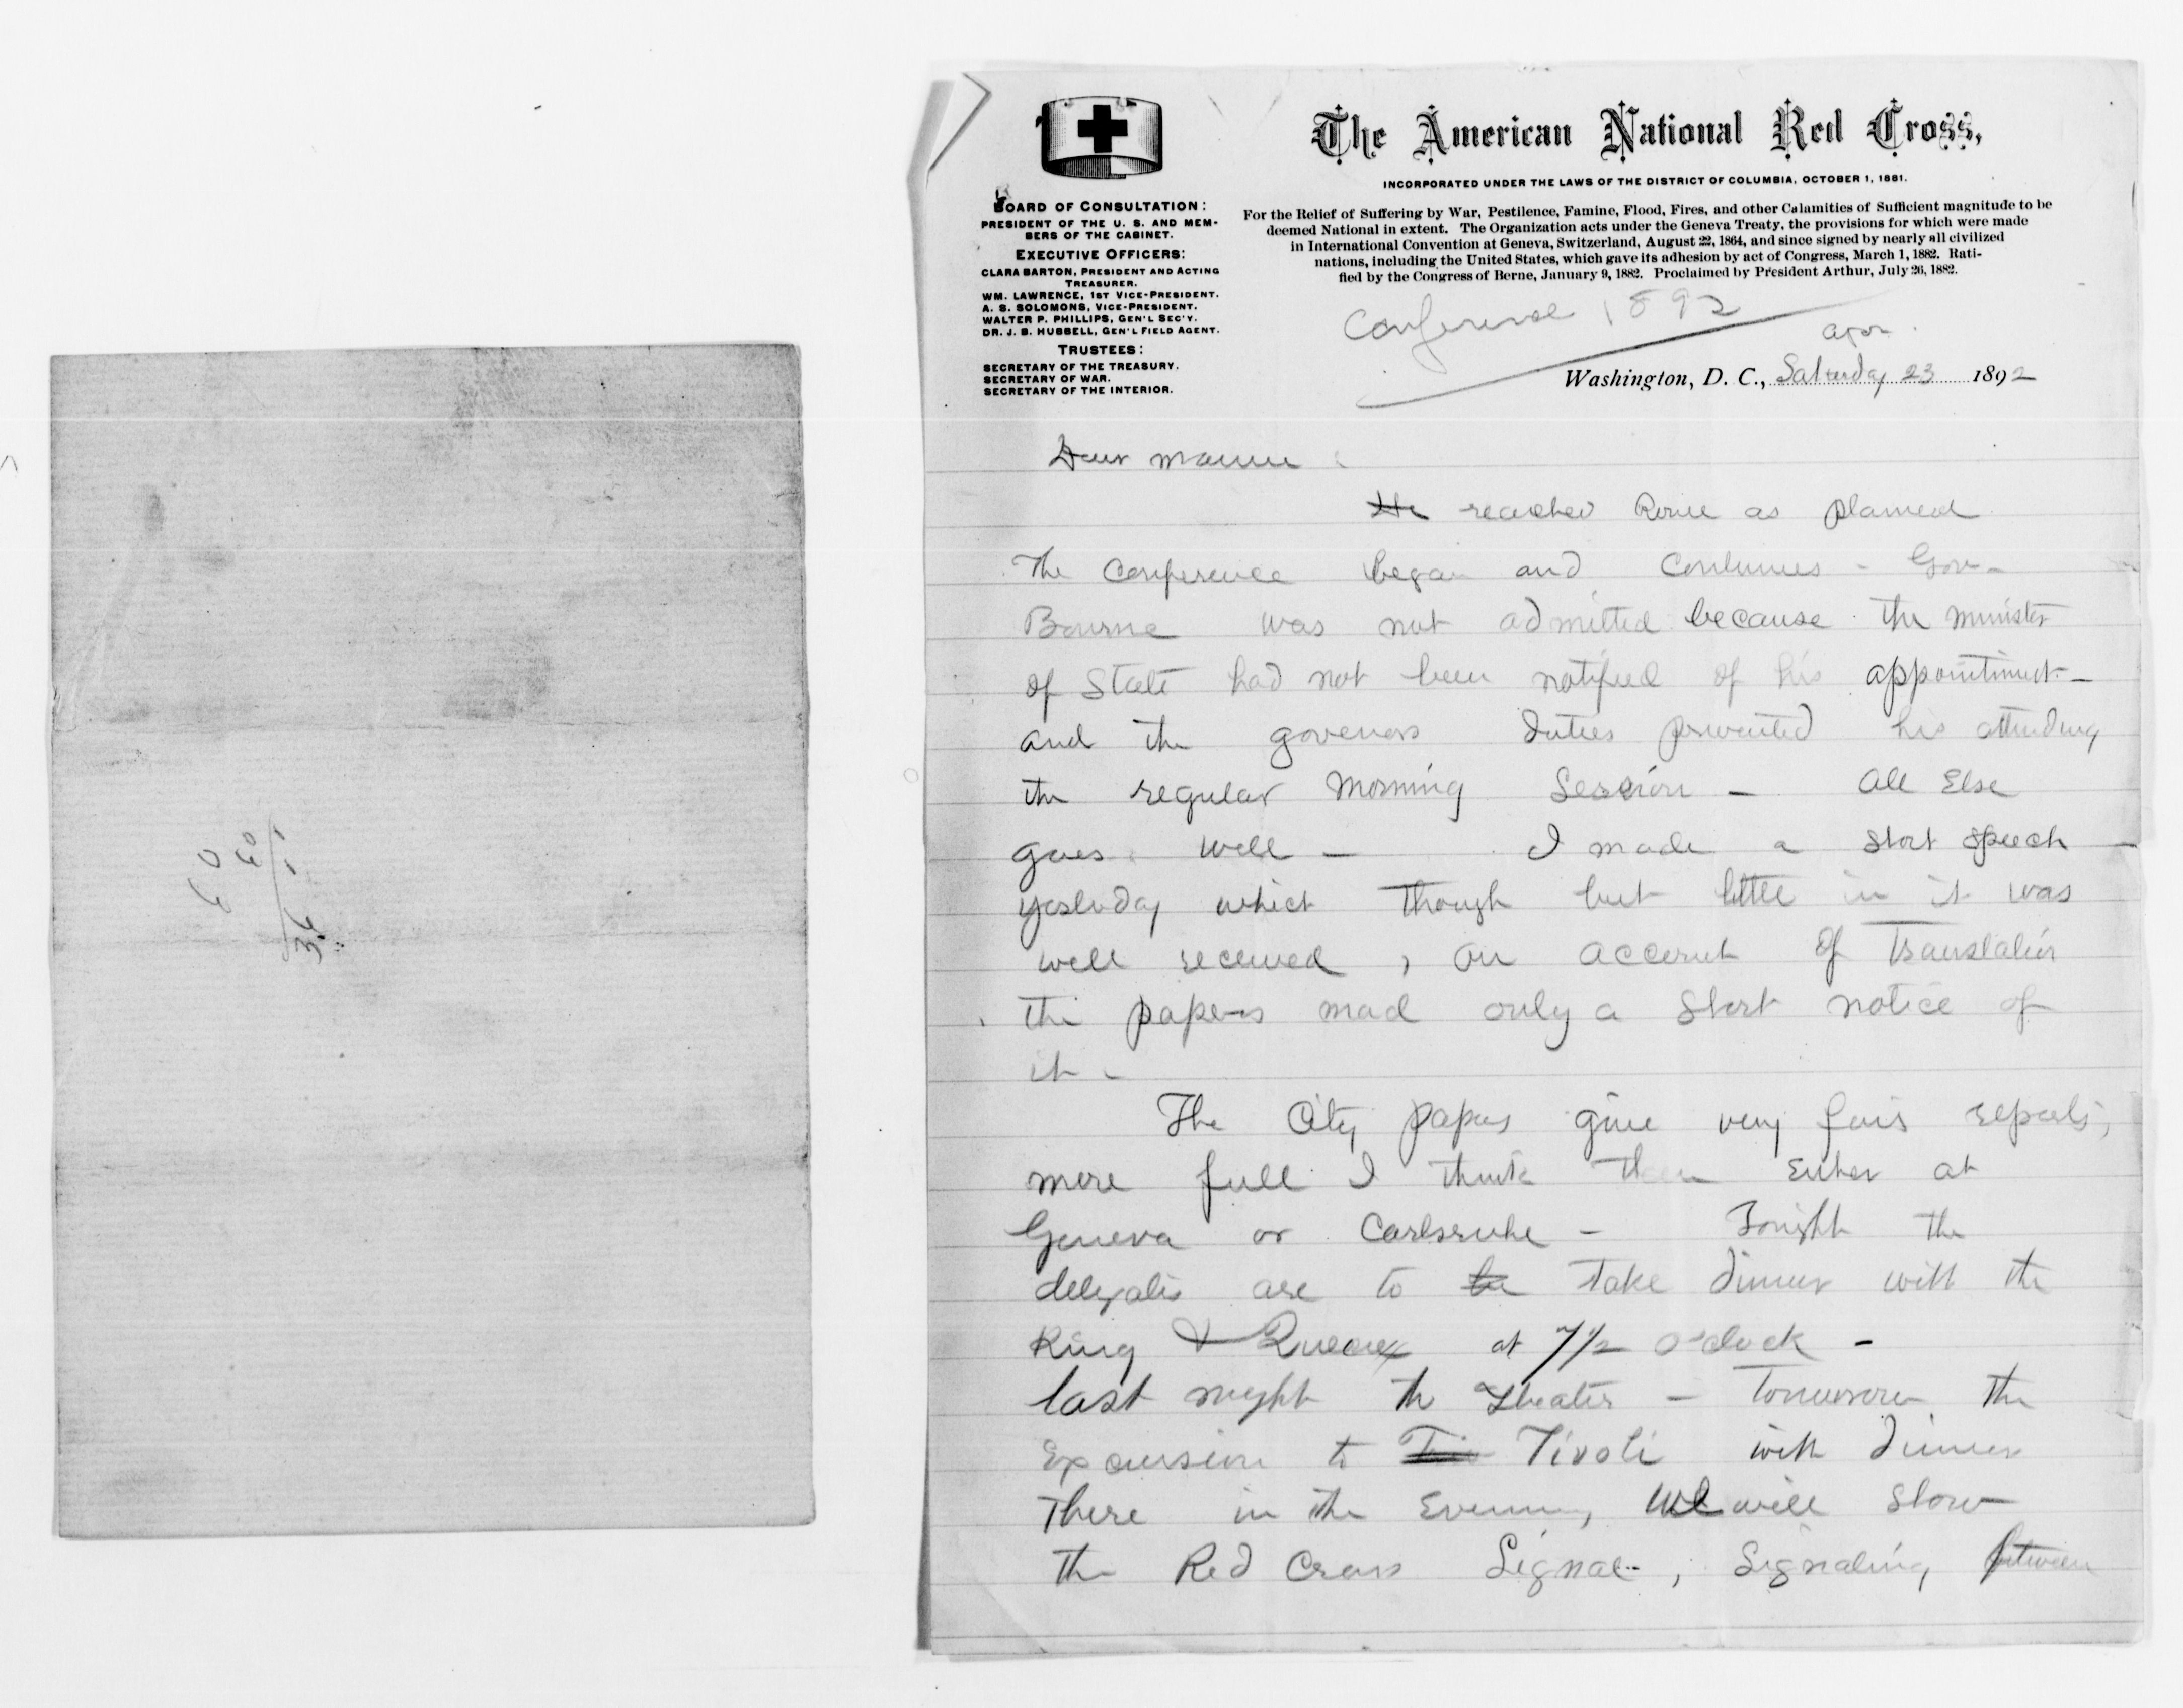 60
60
36
The American National Red Cross,
INCORPORATED UNDER THE LAWS OF THE DISTRICT OF COLUMBIA, OCTOBER 1, 1881.
For the Relief of Suffering by War, Pestilence, Famine, Flood, Fires, and other Calamities of Sufficient magnitude to be
deemed National in extent. The Organization acts under the Geneva Treaty, the provisions for which were made
in International Convention at Geneva, Switzerland, August 22, 1864, and since signed by nearly all civilized
nations, including the United States, which gave its adhesion by act of Congress, March 1, 1882. Rati-
fied by the Congress of Berne, January 9, 1882. Proclaimed by President Arthur, July 26, 1882.
BOARD OF CONSULTATION:
PRESIDENT OF THE U. S. AND MEM-
BERS OF THE CABINET.
EXECUTIVE OFFICERS:
CLARA BARTON, PRESIDENT AND ACTING
TREASURER.
WM. LAWRENCE, 1ST VICE-PRESIDENT.
A. S. SOLOMONS, VICE-PRESIDENT.
WALTER P. PHILLIPS, GEN'L SEC'Y.
DR. J. B. HUBBELL, GEN'L FIELD AGENT.
TRUSTEES:
SECRETARY OF THE TREASURY.
SECRETARY OF WAR.
SECRETARY OF THE INTERIOR.
Conference 1892
Washington, D. C., Saturday 23 1892
Dear
reached Rome as planned
The Conference began and continues - Gov-
Bourne was not admitted because the minister
of State had not been notified of his appointment -
and the governors duties prevented his attending
the regular morning Session - All Else
goes well - I made a short speech -
yesterday which though but little in it was
well received, on account of Translation
the papers mad only a short notice of
it -
The City papers give very fair reports,
more full I think than Either at
Geneva or Carlsruhe - Tonight the
delegates are to be take dinner with the
King & Queen at 7 1/2 o'clock -
last night the Theater - Tomorrow the
Excursion to Tivoli with dinner
There in the Evening, We will show
the Red Cross Signal, Signaling between